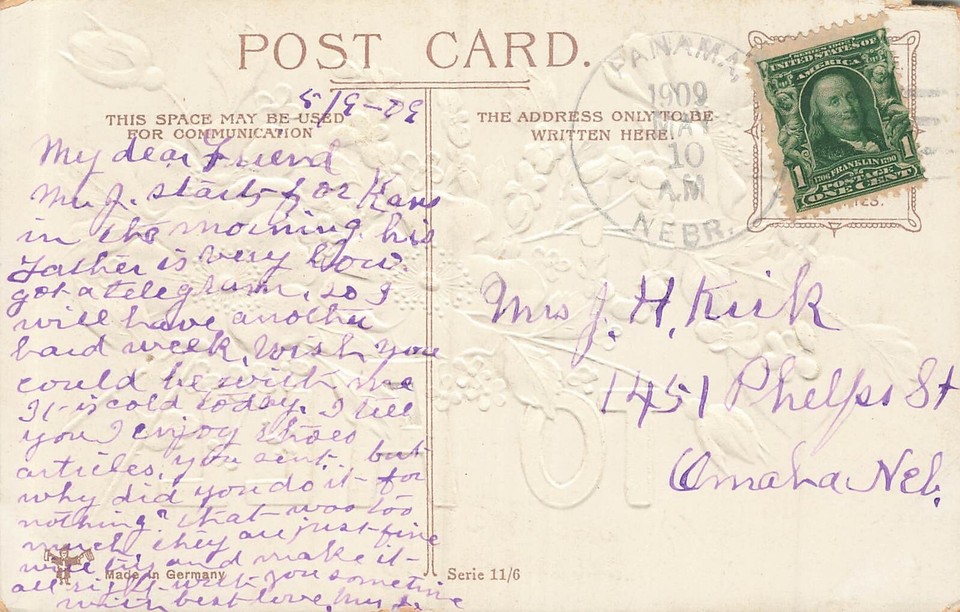 POST CARD.
THIS SPACE MAY BE USED
FOR COMMUNICATION
5/9-09
My dear Friend
Mr J. starts for Kans
in the morning. his
Father is very low.
got a telegram. so I
will have another
hard week. Wish you
could be with me
It is cold today. I tell
you I enjoy those
articles, you sent. but
why did you do it for
nothing? that was too
much they are just fine
will try and make it
all right with you sometime
with best love. Mrs J.
Made in Germany
THE ADDRESS ONLY TO BE
WRITTEN HERE
PANAMA,
1909
MAY
10
AM
NEBR.
SERIES 1902
UNITED STATES OF
AMERICA
1706 FRANKLIN 1790
1 1
POSTAGE
ONE CENT
Mrs J. H. Kirk
1451 Phelps St
Omaha Neb.
Serie 11/6